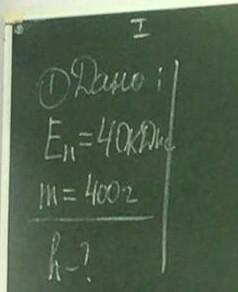 I
① Дано:
Eп = 40 кДж
m = 400 г
h - ?